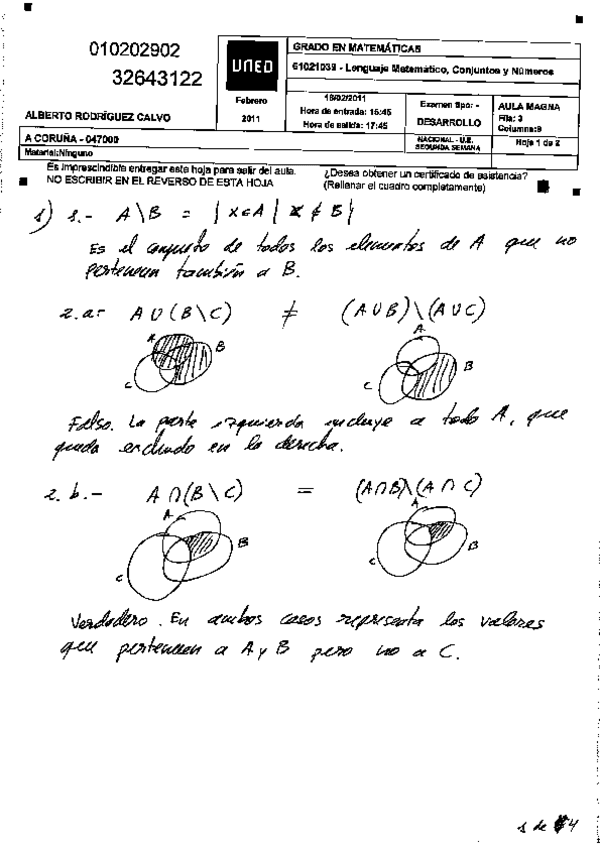 010202902
32643122
ALBERTO RODRÍGUEZ CALVO
A CORUÑA - 047000
Material:Ninguno
UNED
Febrero
2011
GRADO EN MATEMÁTICAS
61021039 - Lenguaje Matemático, Conjuntos y Números
18/02/2011
Hora de entrada: 15:45
Hora de salida: 17:45
Examen tipo: -
DESARROLLO
NACIONAL - U.E.
SEGUNDA SEMANA
AULA MAGNA
Fila: 3
Columna:9
Hoja 1 de 2
Es imprescindible entregar esta hoja para salir del aula.
NO ESCRIBIR EN EL REVERSO DE ESTA HOJA
¿Desea obtener un certificado de asistencia?
(Rellenar el cuadro completamente)
1) 1.- A\B = {x∈A | x∉B}
Es el conjunto de todos los elementos de A que no
pertenecen también a B.
2.a.- A∪(B\C) ≠ (A∪B)\(A∪C)
A B C A B C
Falso. La parte izquierda incluye a todo A, que
queda excluido en la derecha.
2.b.- A∩(B\C) = (A∩B)\(A∩C)
A B C A B C
Verdadero. En ambos casos representa los valores
que pertenecen a A y B pero no a C.
1 de 4